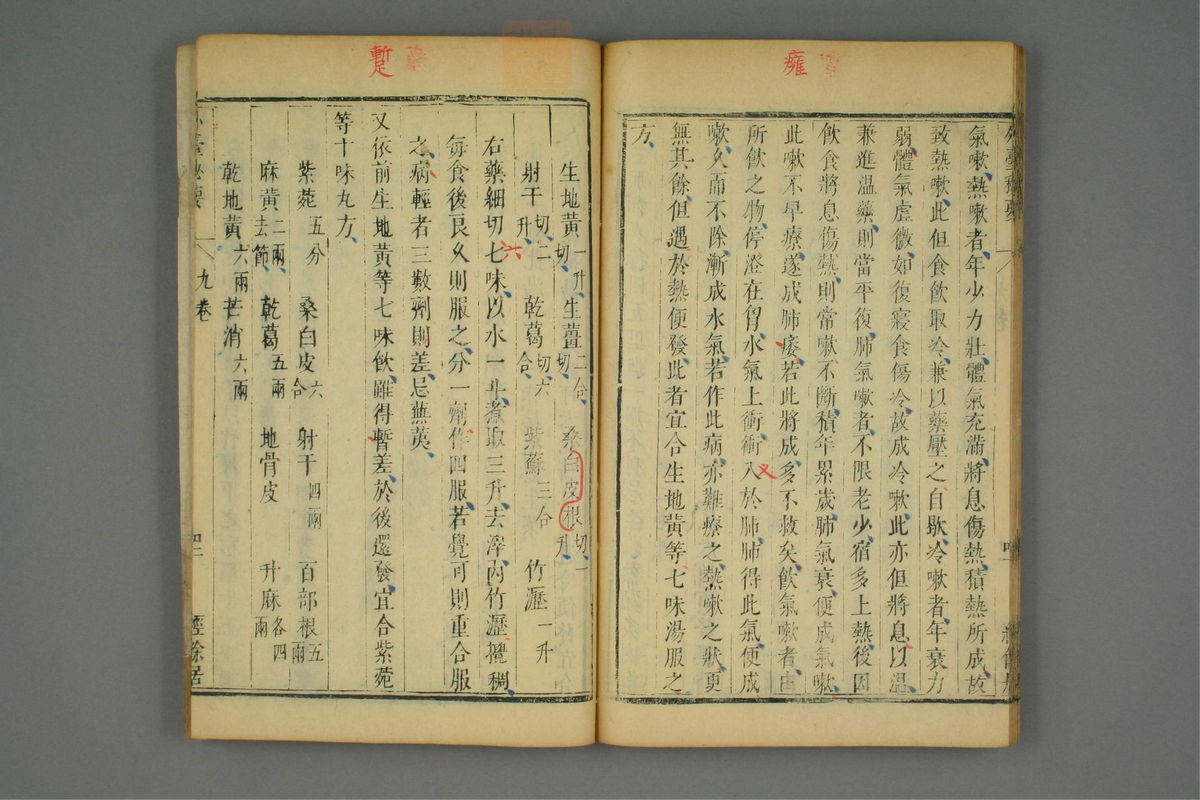 癰
氣嗽熱嗽者年少力壯體氣充滿將息傷熱積熱所成故
致熱嗽此但食飲取冷兼以藥壓之自歇冷嗽者年衰力
弱體氣虛微如復寢食傷冷故成冷嗽此亦但將息以溫
兼進溫藥則當平復肺氣嗽者不限老少宿多上熱後因
飲食將息傷熱則常嗽不斷積年累歲肺氣衰便成氣嗽
此嗽不早療遂成肺痿若此將成多不救矣飲氣嗽者由
所飲之物停澄在胷水氣上衝衝入於肺肺得此氣便成
嗽久而不除漸成水氣若作此病亦難療之熱嗽之狀更
無其餘但遇於熱便發此者宜合生地黃等七味湯服之
方
蹔
生地黃一升切 生薑二合切 桑白皮根切一升
射干切二升 乾葛切六合 紫蘇三合 竹瀝一升
右藥細切七味以水一斗煮取三升去滓內竹瀝攪稠
六
每食後良久則服之分一劑作四服若覺可則重合服
之病輕者三數劑則差忌蕪荑
又依前生地黃等七味飲雖得暫差於後還發宜合紫菀
等十味丸方
紫菀五分 桑白皮六合 射干四兩 百部根五兩
麻黃二兩去節 乾葛五兩 地骨皮 升麻各四兩
乾地黃六兩 芒消六兩
九卷
四二
經餘居